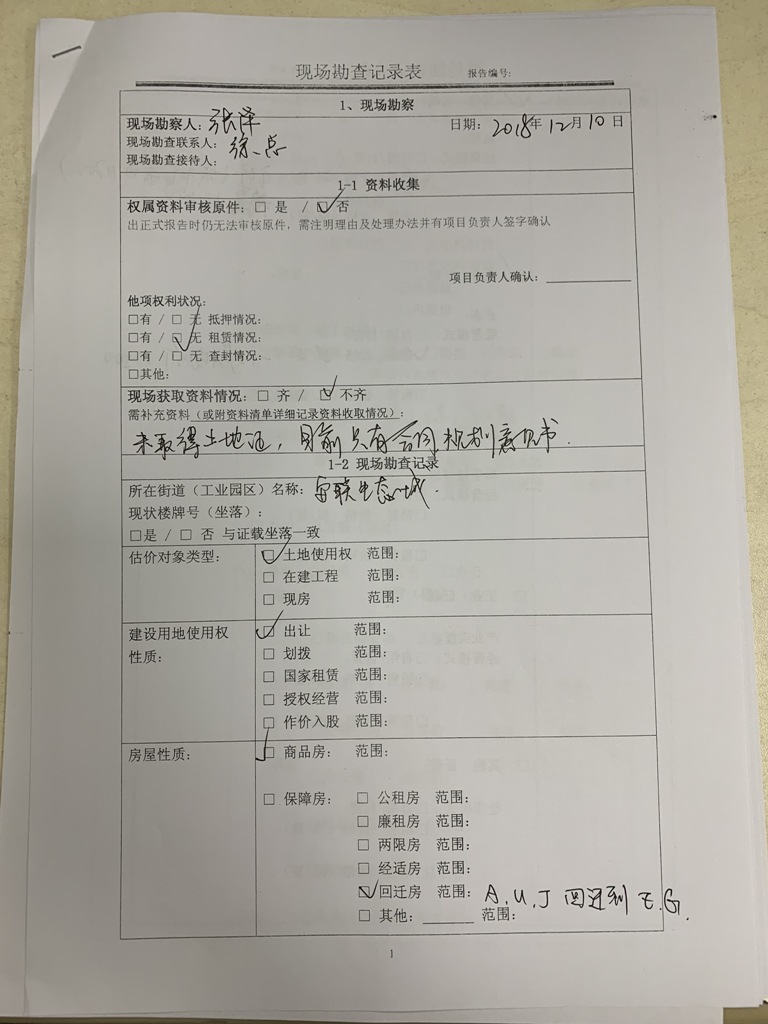 现场勘查记录表 报告编号:
1、现场勘察
现场勘察人: 张泽 日期: 2018年12月10日
现场勘查联系人: 徐总
现场勘查接待人:
1-1 资料收集
权属资料审核原件: □ 是 / ☑ 否
出正式报告时仍无法审核原件，需注明理由及处理办法并有项目负责人签字确认
项目负责人确认: ________
他项权利状况:
□有 / □ 无 抵押情况:
□有 / ☑ 无 租赁情况:
□有 / □ 无 查封情况:
□其他:
现场获取资料情况: □ 齐 / ☑ 不齐
需补充资料（或附资料清单详细记录资料收取情况）:
未取得土地证，目前只有合同、规划意见书.
1-2 现场勘查记录
所在街道（工业园区）名称: 生态城.
现状楼牌号（坐落）:
□是 / □ 否 与证载坐落一致
估价对象类型: ☑ 土地使用权 范围:
□ 在建工程 范围:
□ 现房 范围:
建设用地使用权 ☑ 出让 范围:
性质: □ 划拨 范围:
□ 国家租赁 范围:
□ 授权经营 范围:
□ 作价入股 范围:
房屋性质: ☑ 商品房: 范围:
□ 保障房: □ 公租房 范围:
□ 廉租房 范围:
□ 两限房 范围:
□ 经适房 范围:
☑ 回迁房 范围: A.U.J 回迁到 E.G.
□ 其他: ______ 范围:
1